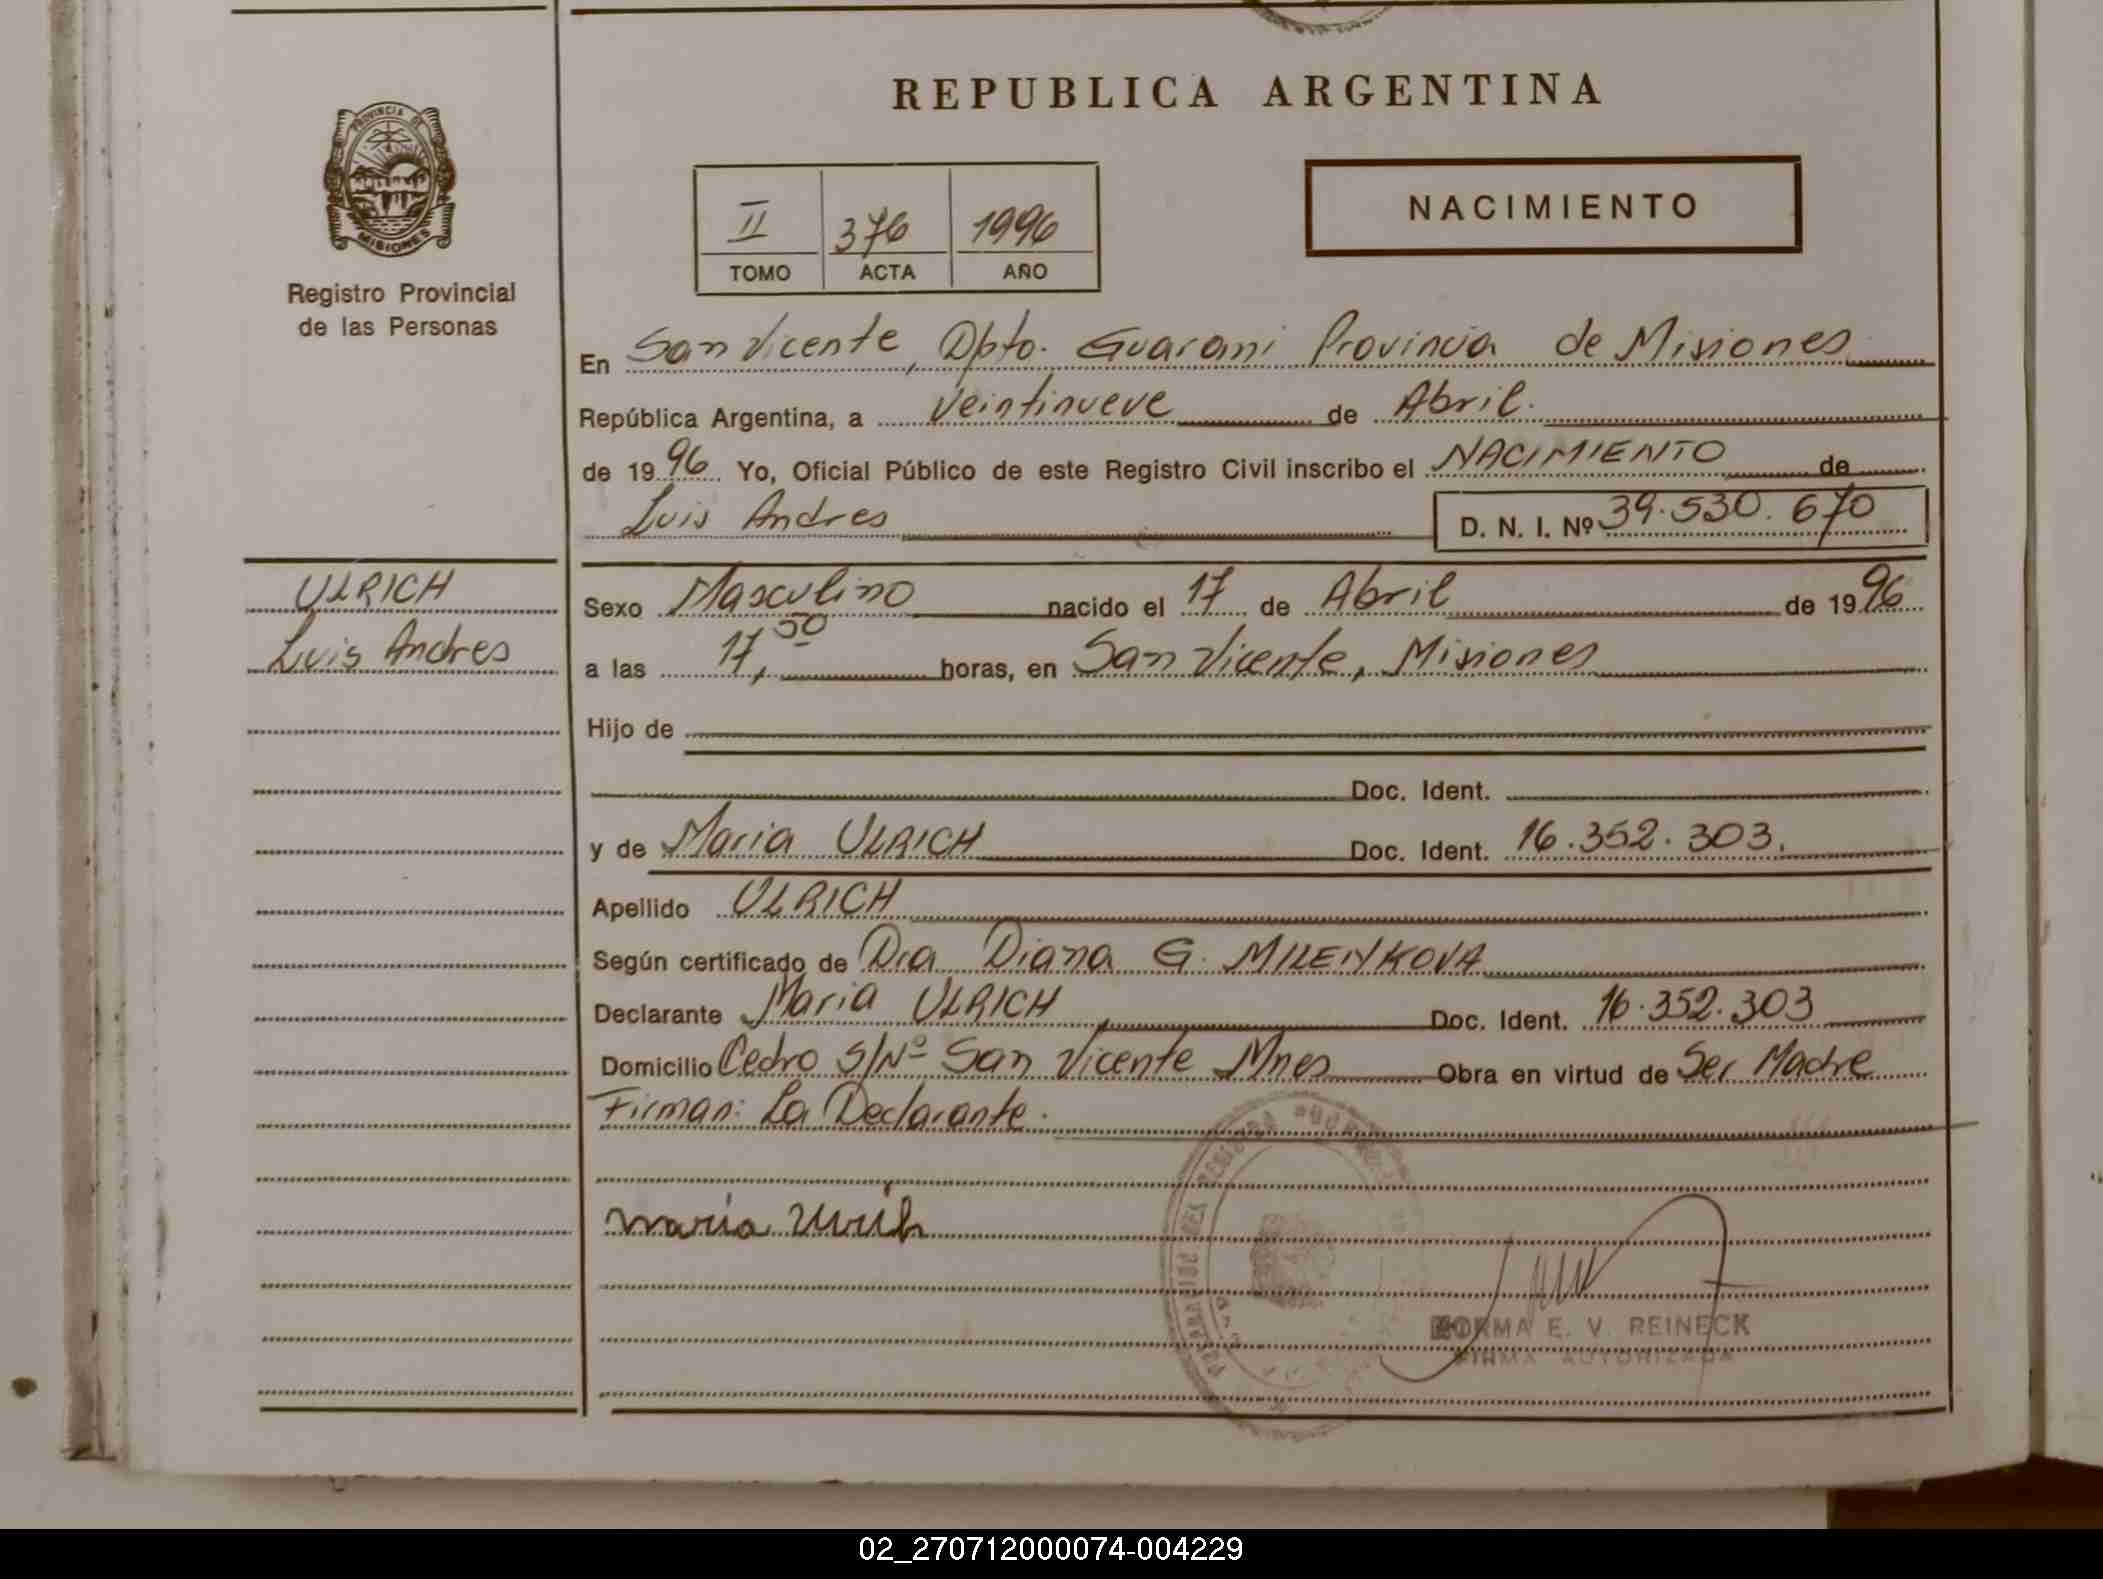 PROVINCIA DE
MISIONES
Registro Provincial
de las Personas
REPUBLICA ARGENTINA
II 376 1996
TOMO ACTA AÑO
NACIMIENTO
En San Vicente, Dpto. Guarani Provincia de Misiones
República Argentina, a veintinueve de Abril.
de 1996 Yo, Oficial Público de este Registro Civil inscribo el NACIMIENTO de
Luis Andres D. N. I. Nº 39.530.670
ULRICH
Luis Andres
Sexo Masculino nacido el 17 de Abril de 1996
a las 17,50 horas, en San Vicente, Misiones
Hijo de
Doc. Ident.
y de Maria ULRICH Doc. Ident. 16.352.303.
Apellido ULRICH
Según certificado de Dra Diana G. MILENKOVA
Declarante Maria ULRICH Doc. Ident. 16.352.303
Domicilio Cedro S/Nº San Vicente Mnes Obra en virtud de Ser Madre
Firman: La Declarante.
maria Ulrich
NORMA E. V. REINECK
FIRMA AUTORIZADA
02_270712000074-004229